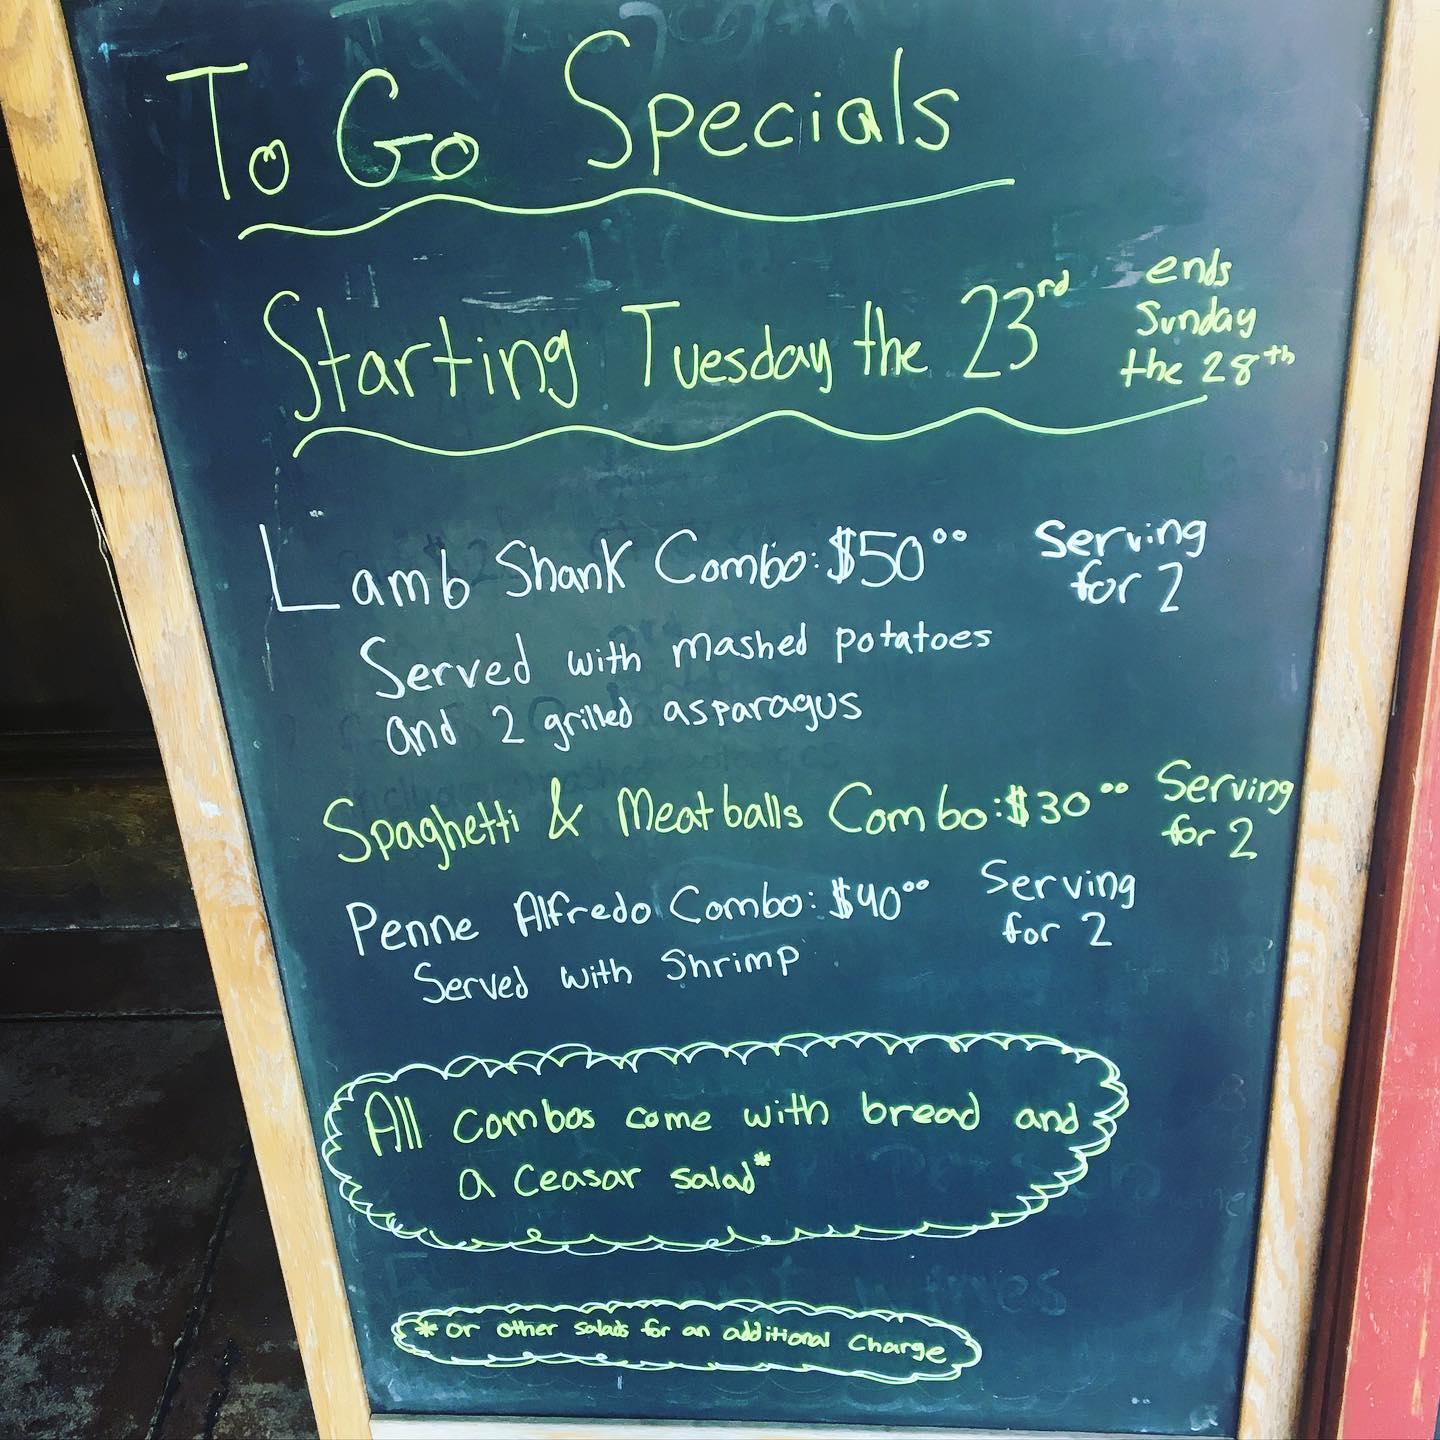 To Go Specials
Starting Tuesday the 23rd
ends
Sunday
the 28th
Lamb Shank Combo: $50.00
Serving
for 2
Served with mashed potatoes
and 2 grilled asparagus
Spaghetti & Meatballs Combo: $30.00
Serving
for 2
Penne Alfredo Combo: $40.00
Serving
for 2
Served with Shrimp
All combos come with bread and
a Ceasar salad*
*or other salads for an additional charge